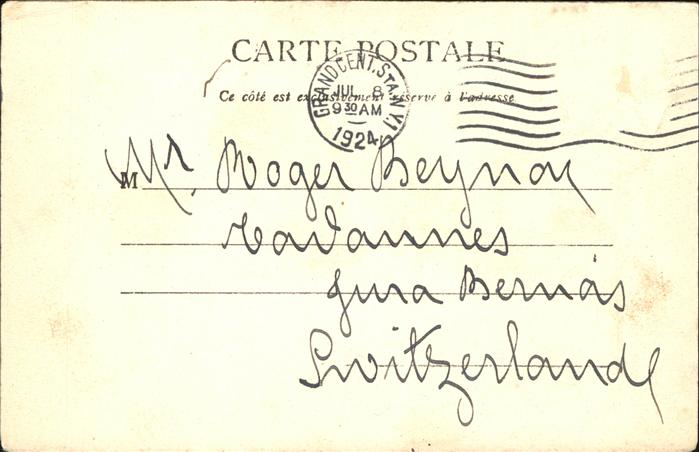 CARTE POSTALE
Ce côté est exclusivement réservé à l'adresse
GRAND CENT. STA. N.Y.
JUL 8
9 30 AM
1924
M Mr. Roger Beynon
Tavannes
Jura Bernois
Switzerland